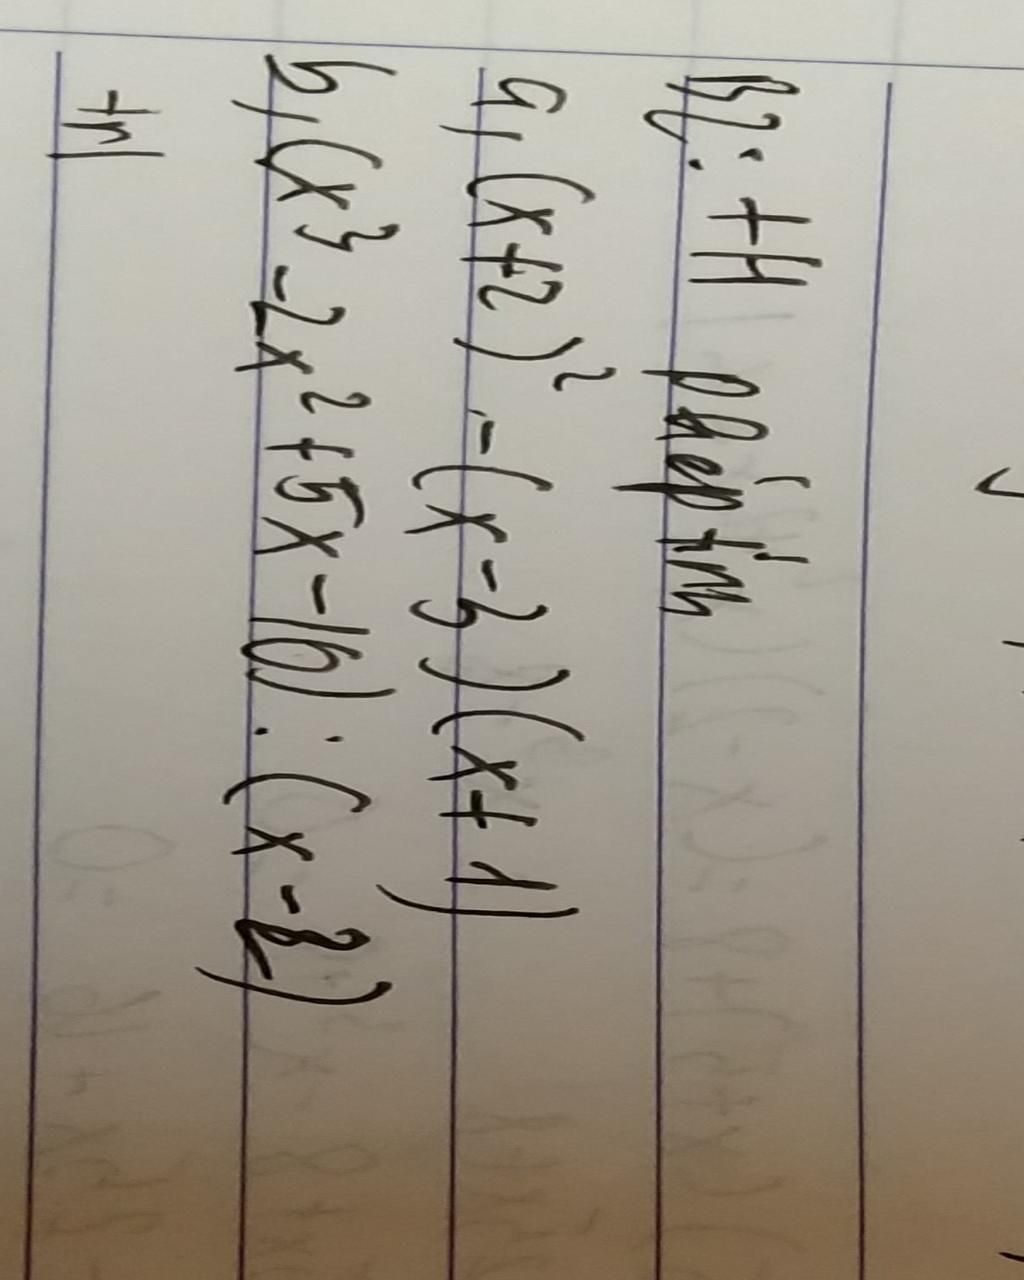 B2: TH phép tính
a, (x+2)² - (x-3)(x+1)
b, (x³-2x²+5x-10):(x-2)
trl